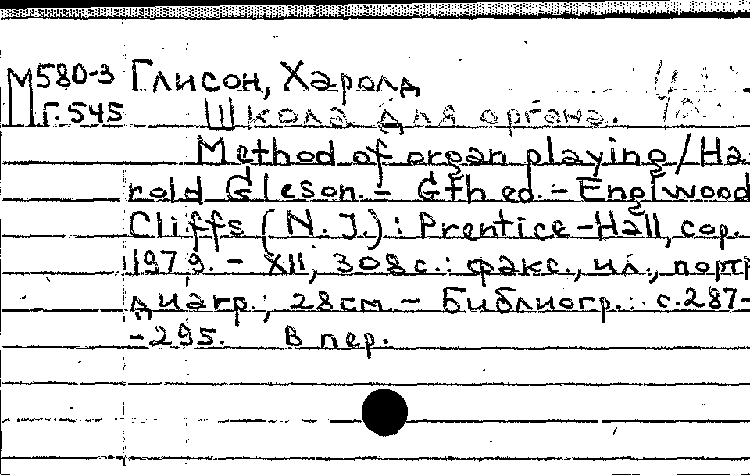 М580-3 Глисон, Харолд
Г.545 Школа для органа.
Method of organ playing / Ha-
rold Gleson. - 6th ed. - Englwood
Cliffs (N. J.): Prentice-Hall, cop.
1979. - XII, 308 с.: факс., ил., портр
диагр.; 28 см - Библиогр.: с.287-
-295. В пер.